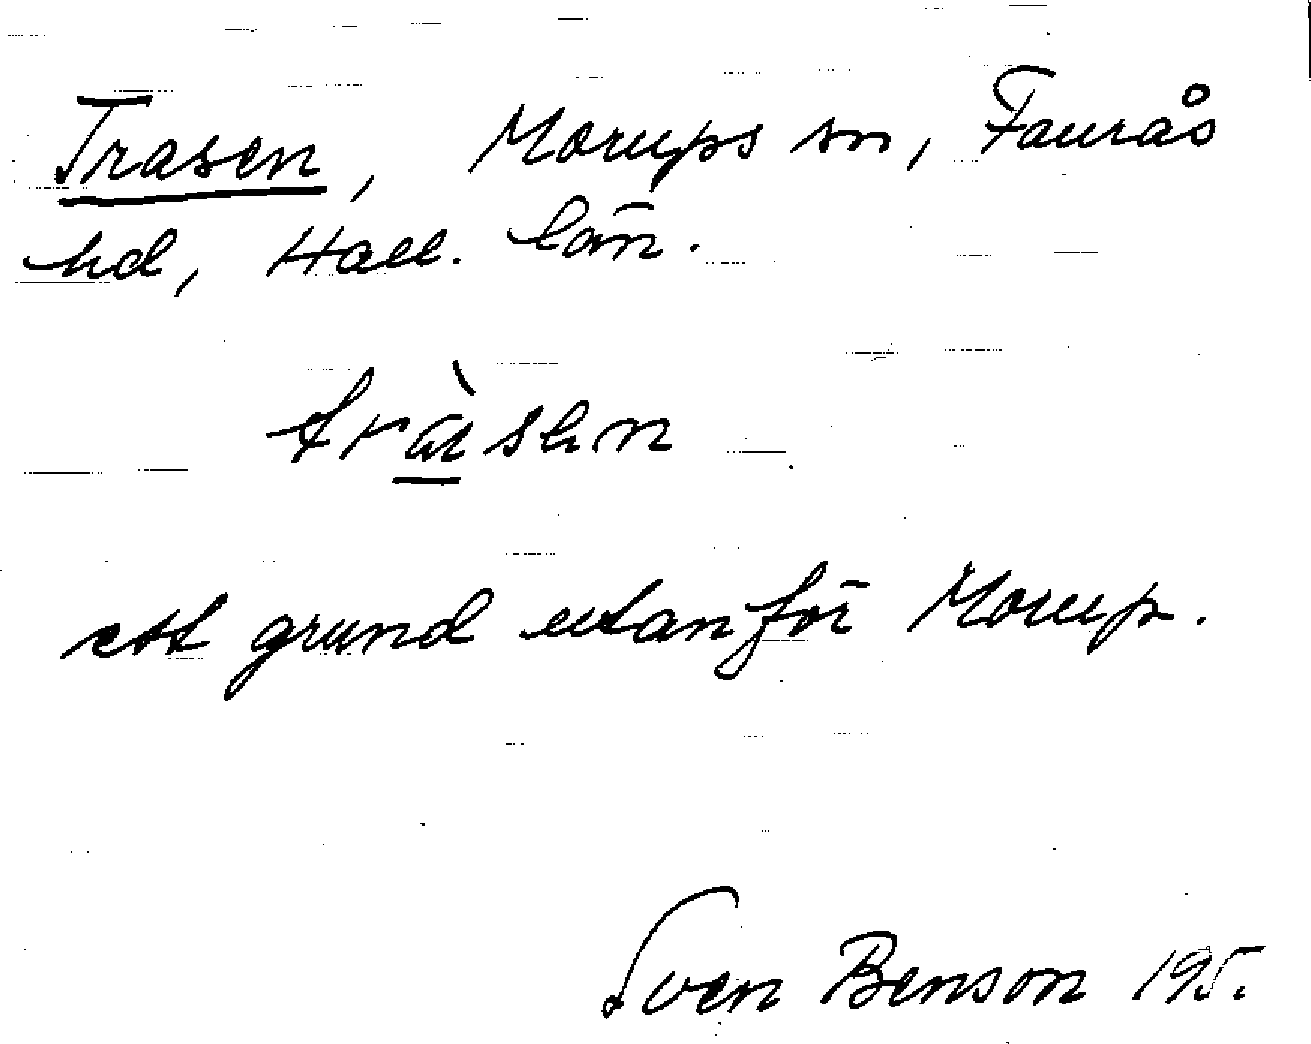 Trasen, Morups sn, Faurås
hd, Hall. län.
ett grund utanför Morup.
Sven Benson 195.